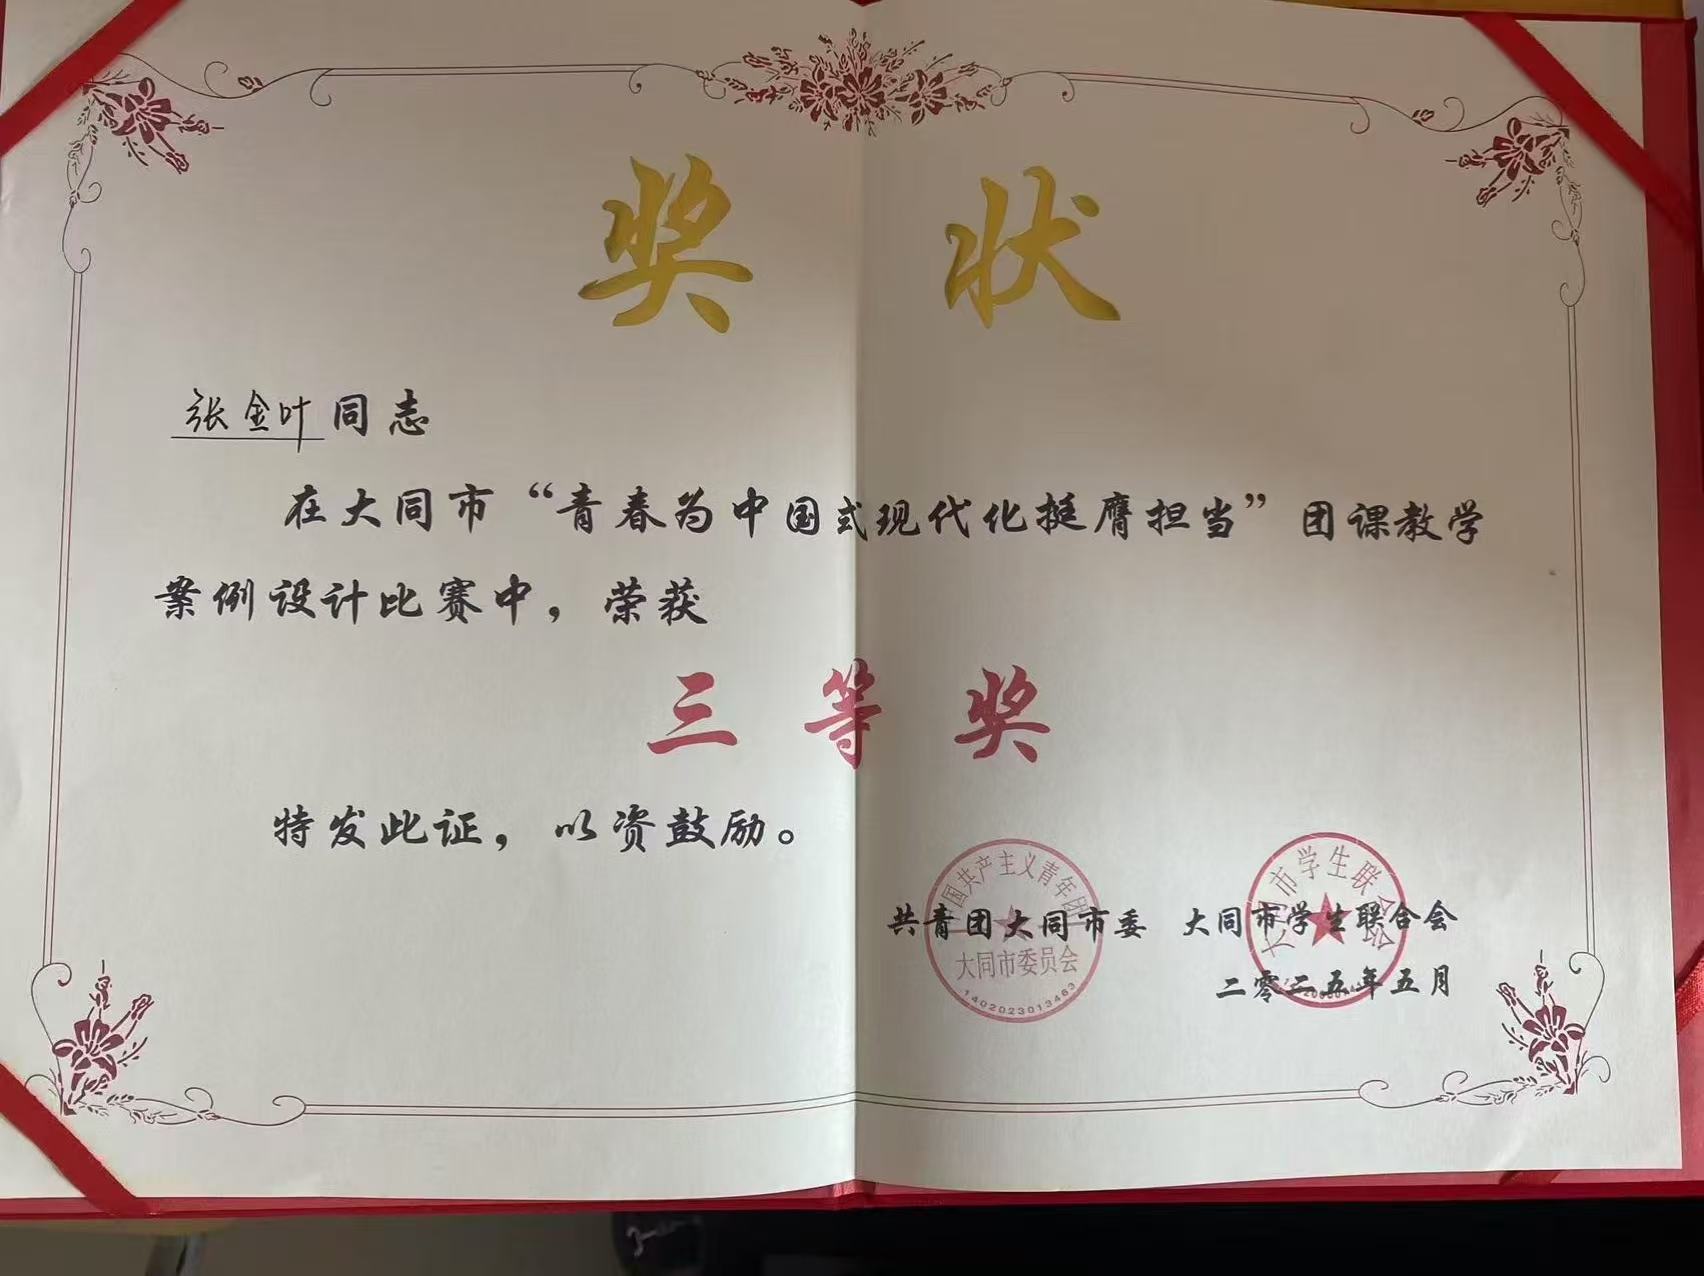 奖状
张金叶同志
在大同市“青春为中国式现代化挺膺担当”团课教学
案例设计比赛中，荣获
三等奖
特发此证，以资鼓励。
共青团大同市委 大同市学生联合会
二零二五年五月
国共产主义青年团
大同市委员会
1402023013463
大同市学生联合会